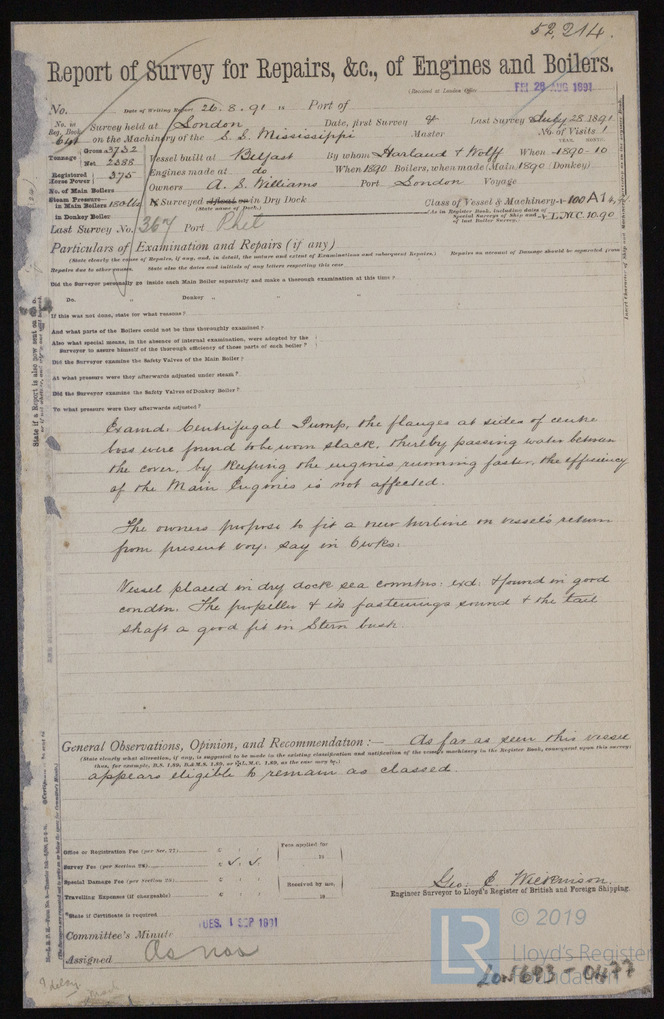 52,214.
Report of Survey for Repairs, &c., of Engines and Boilers.
(Received at London Office FRI. 28 AUG 1891
No. Date of Writing Report 26.8.91 Port of
No. in Reg. Book. Survey held at London Date, first Survey & Last Survey July 28 1891
641 on the Machinery of the S. S. Mississippi Master No. of Visits 1
Tonnage Gross 3732 Net 2388 Vessel built at Belfast By whom Harland & Wolff When 1890-10
Registered Horse Power 375 Engines made at do When 1890 Boilers, when made (Main) 1890 (Donkey)
No. of Main Boilers Owners A. S. Williams Port London Voyage
Steam Pressure in Main Boilers 180 lbs Surveyed afloat or in Dry Dock Class of Vessel & Machinery 100 A1
(State name of Dock.)
in Donkey Boiler (As in Register Book, including dates of Special Surveys of Ship and of last Boiler Survey.) L.M.C. 10.90
Last Survey No. 367 Port Phil
Particulars of Examination and Repairs (if any)
(State clearly the cause of Repairs, if any, and, in detail, the nature and extent of Examinations and subsequent Repairs.) Repairs on account of Damage should be separated from
Repairs due to other causes. State also the dates and initials of any letters respecting this case
Did the Surveyor personally go inside each Main Boiler separately and make a thorough examination at this time?
Do. „ Donkey „ „ „
If this was not done, state for what reasons?
And what parts of the Boilers could not be thus thoroughly examined?
Also what special means, in the absence of internal examination, were adopted by the
Surveyor to assure himself of the thorough efficiency of those parts of such boiler?
Did the Surveyor examine the Safety Valves of the Main Boiler?
At what pressure were they afterwards adjusted under steam?
Did the Surveyor examine the Safety Valves of Donkey Boiler?
To what pressure were they afterwards adjusted?
Examd. Centrifugal Pump, the flanges at sides of centre
boss were found to be worn slack, thereby passing water between
the cover, by keeping the engines running faster, the efficiency
of the Main Engines is not affected.
The owners propose to fit a new turbine on vessel's return
from present voy: say in 6 wks.
Vessel placed in dry dock sea conntns: exd. & found in good
condtn. The propeller & its fastenings sound & the tail
shaft a good fit in Stern bush.
General Observations, Opinion, and Recommendation :— As far as seen this vessel
(State clearly what alteration, if any, is suggested to be made in the existing classification and notification of the vessel's machinery in the Register Book, consequent upon this survey;
thus, for example, B.S. 1.89, B.&M.S. 1.89, or L.M.C. 1.89, as the case may be.)
appears eligible to remain as classed.
Office or Registration Fee (per Sec. 27) £ Fees applied for
Survey Fee (per Section 28) £ 18
Special Damage Fee (per Section 28) £ Received by me,
Travelling Expenses (if chargeable) £ 18
Geo. E. Wilkinson.
Engineer Surveyor to Lloyd's Register of British and Foreign Shipping.
*State if Certificate is required
Committee's Minute TUES. 1 SEP 1891
Assigned As now
LR © 2019
Lloyd's Register
Foundation
Lon 693-0477